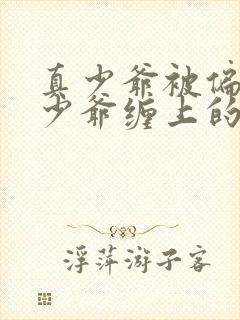 真少爷被偏
少爷缠上的
浮萍游子客